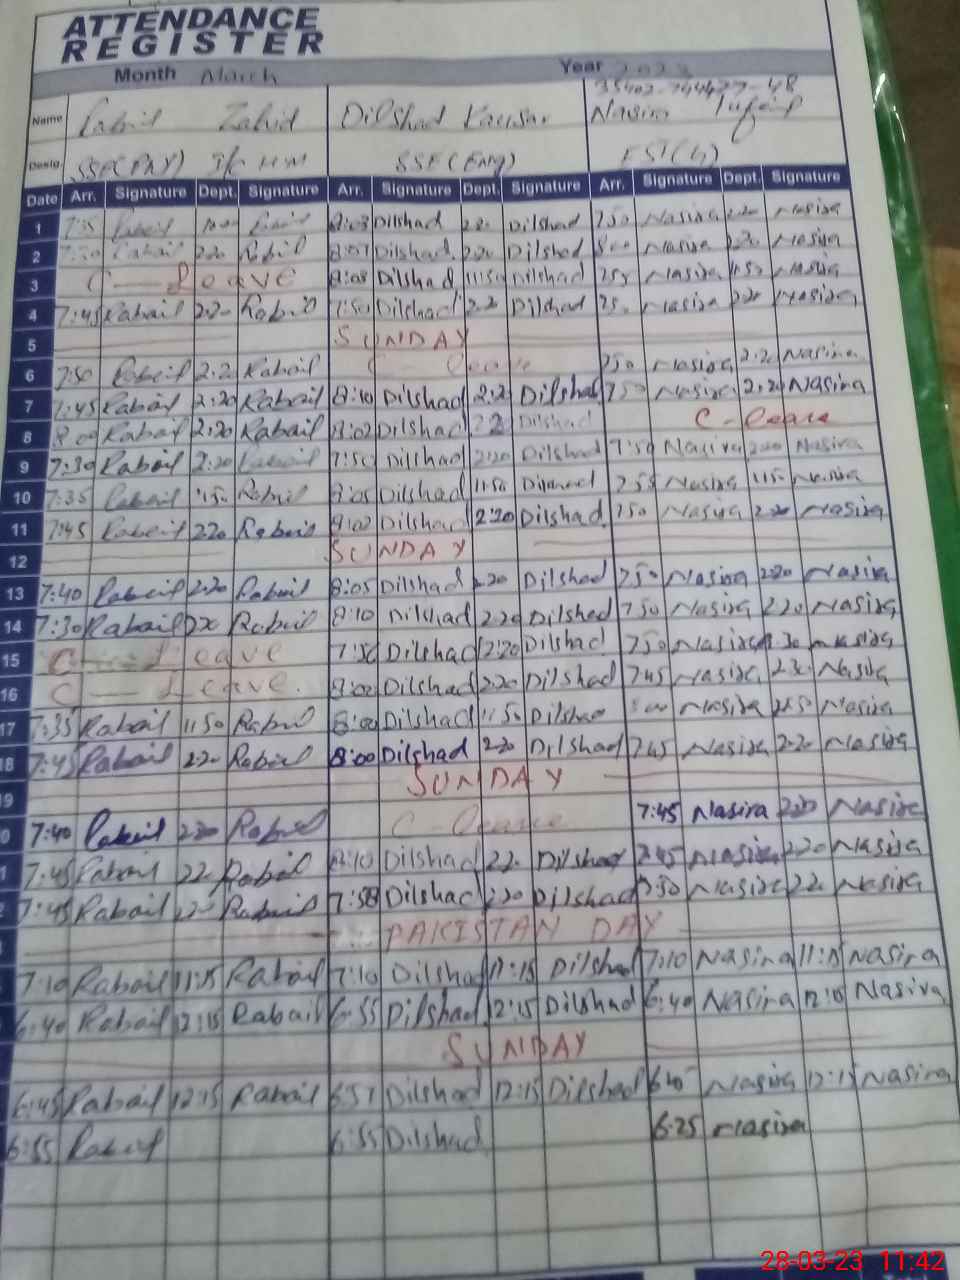 ATTENDANCE
REGISTER
Month March Year 2023
Name Rabail Zahid Dilshad Kausar Nasira
Desig. SSE(Phy) I/C HM SSE(Eng)
Date Arr. Signature Dept. Signature Arr. Signature Dept. Signature Arr. Signature Dept. Signature
1 7:15 Rabail Rabail 8:03 Dilshad 2:20 Dilshad 7:50 Nasira 2:20 Nasira
2 Rabail 2:20 Rabail 8:07 Dilshad 2:20 Dilshad 8:00 Nasira 2:20 Nasira
3 C — Leave 8:08 Dilshad 11:50 Dilshad 7:55 Nasira 11:50 Nasira
4 7:45 Rabail 2:20 Rabail 7:50 Dilshad 2:20 Dilshad Nasira 2:20 Nasira
5 SUNDAY
6 7:50 Rabail 2:20 Rabail C - Leave 7:50 Nasira 2:20 Nasira
7 7:45 Rabail 2:20 Rabail 8:10 Dilshad 2:20 Dilshad 7:50 Nasira 2:20 Nasira
8 8:00 Rabail 2:20 Rabail 8:02 Dilshad 2:20 Dilshad C - Leave
9 7:30 Rabail 2:20 Rabail 7:50 Dilshad 2:20 Dilshad 7:50 Nasira 2:20 Nasira
10 7:35 Rabail 11:50 Rabail 8:05 Dilshad 11:50 Dilshad 7:55 Nasira 11:50 Nasira
11 7:45 Rabail 2:20 Rabail 8:02 Dilshad 2:20 Dilshad 7:50 Nasira 2:20 Nasira
12 SUNDAY
13 7:40 Rabail 2:20 Rabail 8:05 Dilshad 2:20 Dilshad 7:50 Nasira 2:20 Nasira
14 7:30 Rabail 2:20 Rabail 8:10 Dilshad 2:20 Dilshad 7:50 Nasira 2:20 Nasira
15 C — Leave 7:50 Dilshad 2:20 Dilshad 7:50 Nasira Nasira
16 C — Leave. 8:02 Dilshad 2:20 Dilshad 7:45 Nasira Nasira
17 7:35 Rabail 11:50 Rabail 8:00 Dilshad 11:50 Dilshad Nasira Nasira
18 7:45 Rabail 2:20 Rabail 8:00 Dilshad 2:20 Dilshad 7:45 Nasira 2:20 Nasira
19 SUNDAY
7:40 Rabail 2:20 Rabail C - Leave 7:45 Nasira 2:20 Nasira
7:45 Rabail 2:2 Rabail 8:10 Dilshad 2:2 Dilshad 7:45 Nasira 2:20 Nasira
7:45 Rabail Rabail 7:58 Dilshad 2:20 Dilshad 7:50 Nasira 2:2 Nasira
PAKISTAN DAY
7:10 Rabail 11:15 Rabail 7:10 Dilshad 11:15 Dilshad 7:10 Nasira 11:15 Nasira
6:40 Rabail 12:15 Rabail 6:55 Dilshad 12:15 Dilshad 6:40 Nasira 12:15 Nasira
SUNDAY
6:45 Rabail 12:15 Rabail 6:51 Dilshad 12:15 Dilshad 6:40 Nasira 12:15 Nasira
6:55 Rabail 6:55 Dilshad 6:25 Nasira
28-03-23 11:42